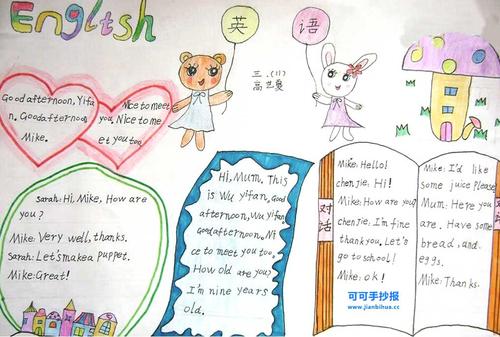 English
英 语
三.(1)
高艺嘉
Good afternoon, Yifa
n. Good afternoon,
Mike.
Nice to meet
you, Nice to me
et you too.
Sarah: Hi, Mike. How are
you?
Mike: Very well, thanks.
Sarah: Let's make a puppet.
Mike: Great!
Hi, Mum. This
is Wu Yifan. Good
afternoon, Wu Yifan
Good afternoon. Ni
ce to meet you too.
How old are you?
I'm nine years
old.
对话
Mike: Hello!
chen jie: Hi!
Mike: How are you?
chen jie: I'm fine
thank you. Let's
go to school!
Mike: ok!
Mike: I'd like
some juice Please
Mum: Here you
are. Have some
bread, and
eggs.
Mike: Thanks.
对话
可可手抄报
www.jianbihua.cc